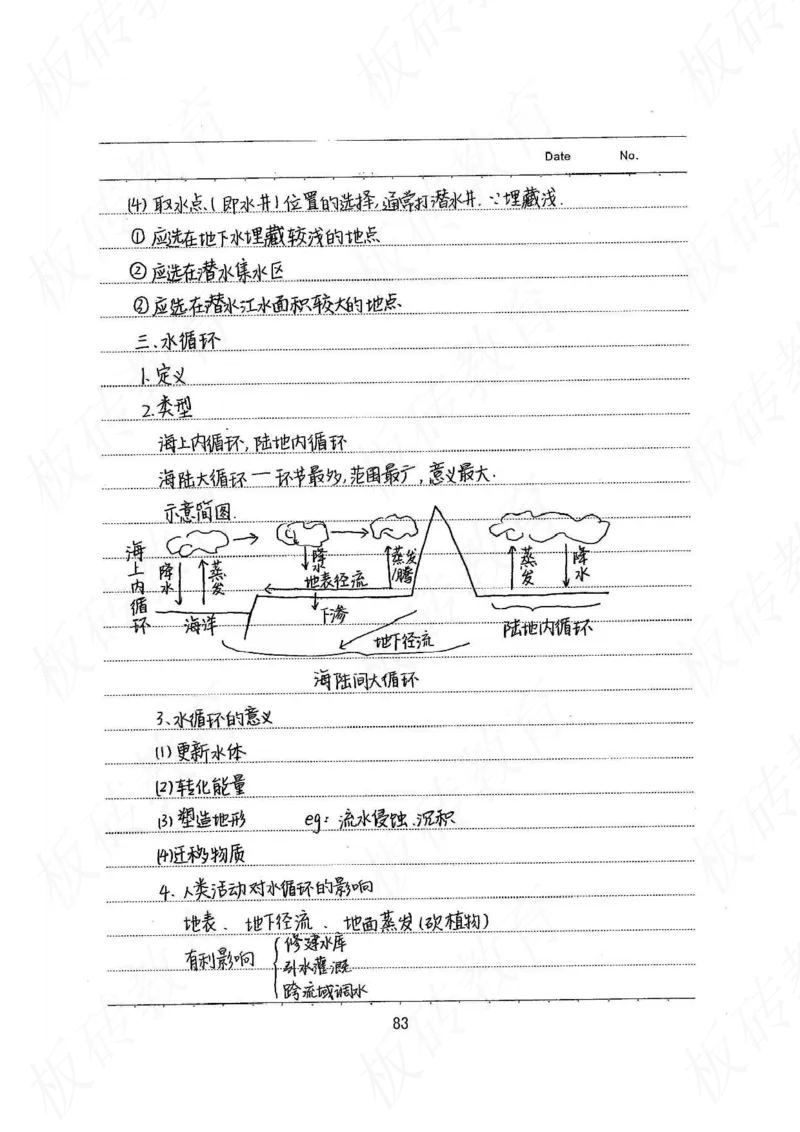 Date No.
(4) 取水点(即水井)位置的选择,通常打潜水井.∵埋藏浅.
① 应选在地下水埋藏较浅的地点
② 应选在潜水集水区
③ 应选在潜水江水面积较大的地点
三、水循环
1. 定义
2. 类型
海上内循环,陆地内循环
海陆大循环 — 环节最多,范围最广,意义最大.
示意简图
海上内循环
降水
蒸发
降水
蒸发/腾
蒸发
降水
地表径流
下渗
海洋
地下径流
陆地内循环
海陆间大循环
3、水循环的意义
(1) 更新水体
(2) 转化能量
(3) 塑造地形 eg: 流水侵蚀.沉积
(4) 迁移物质
4. 人类活动对水循环的影响
地表、地下径流、地面蒸发(砍植物)
有利影响
修建水库
引水灌溉
跨流域调水
83
板砖教育